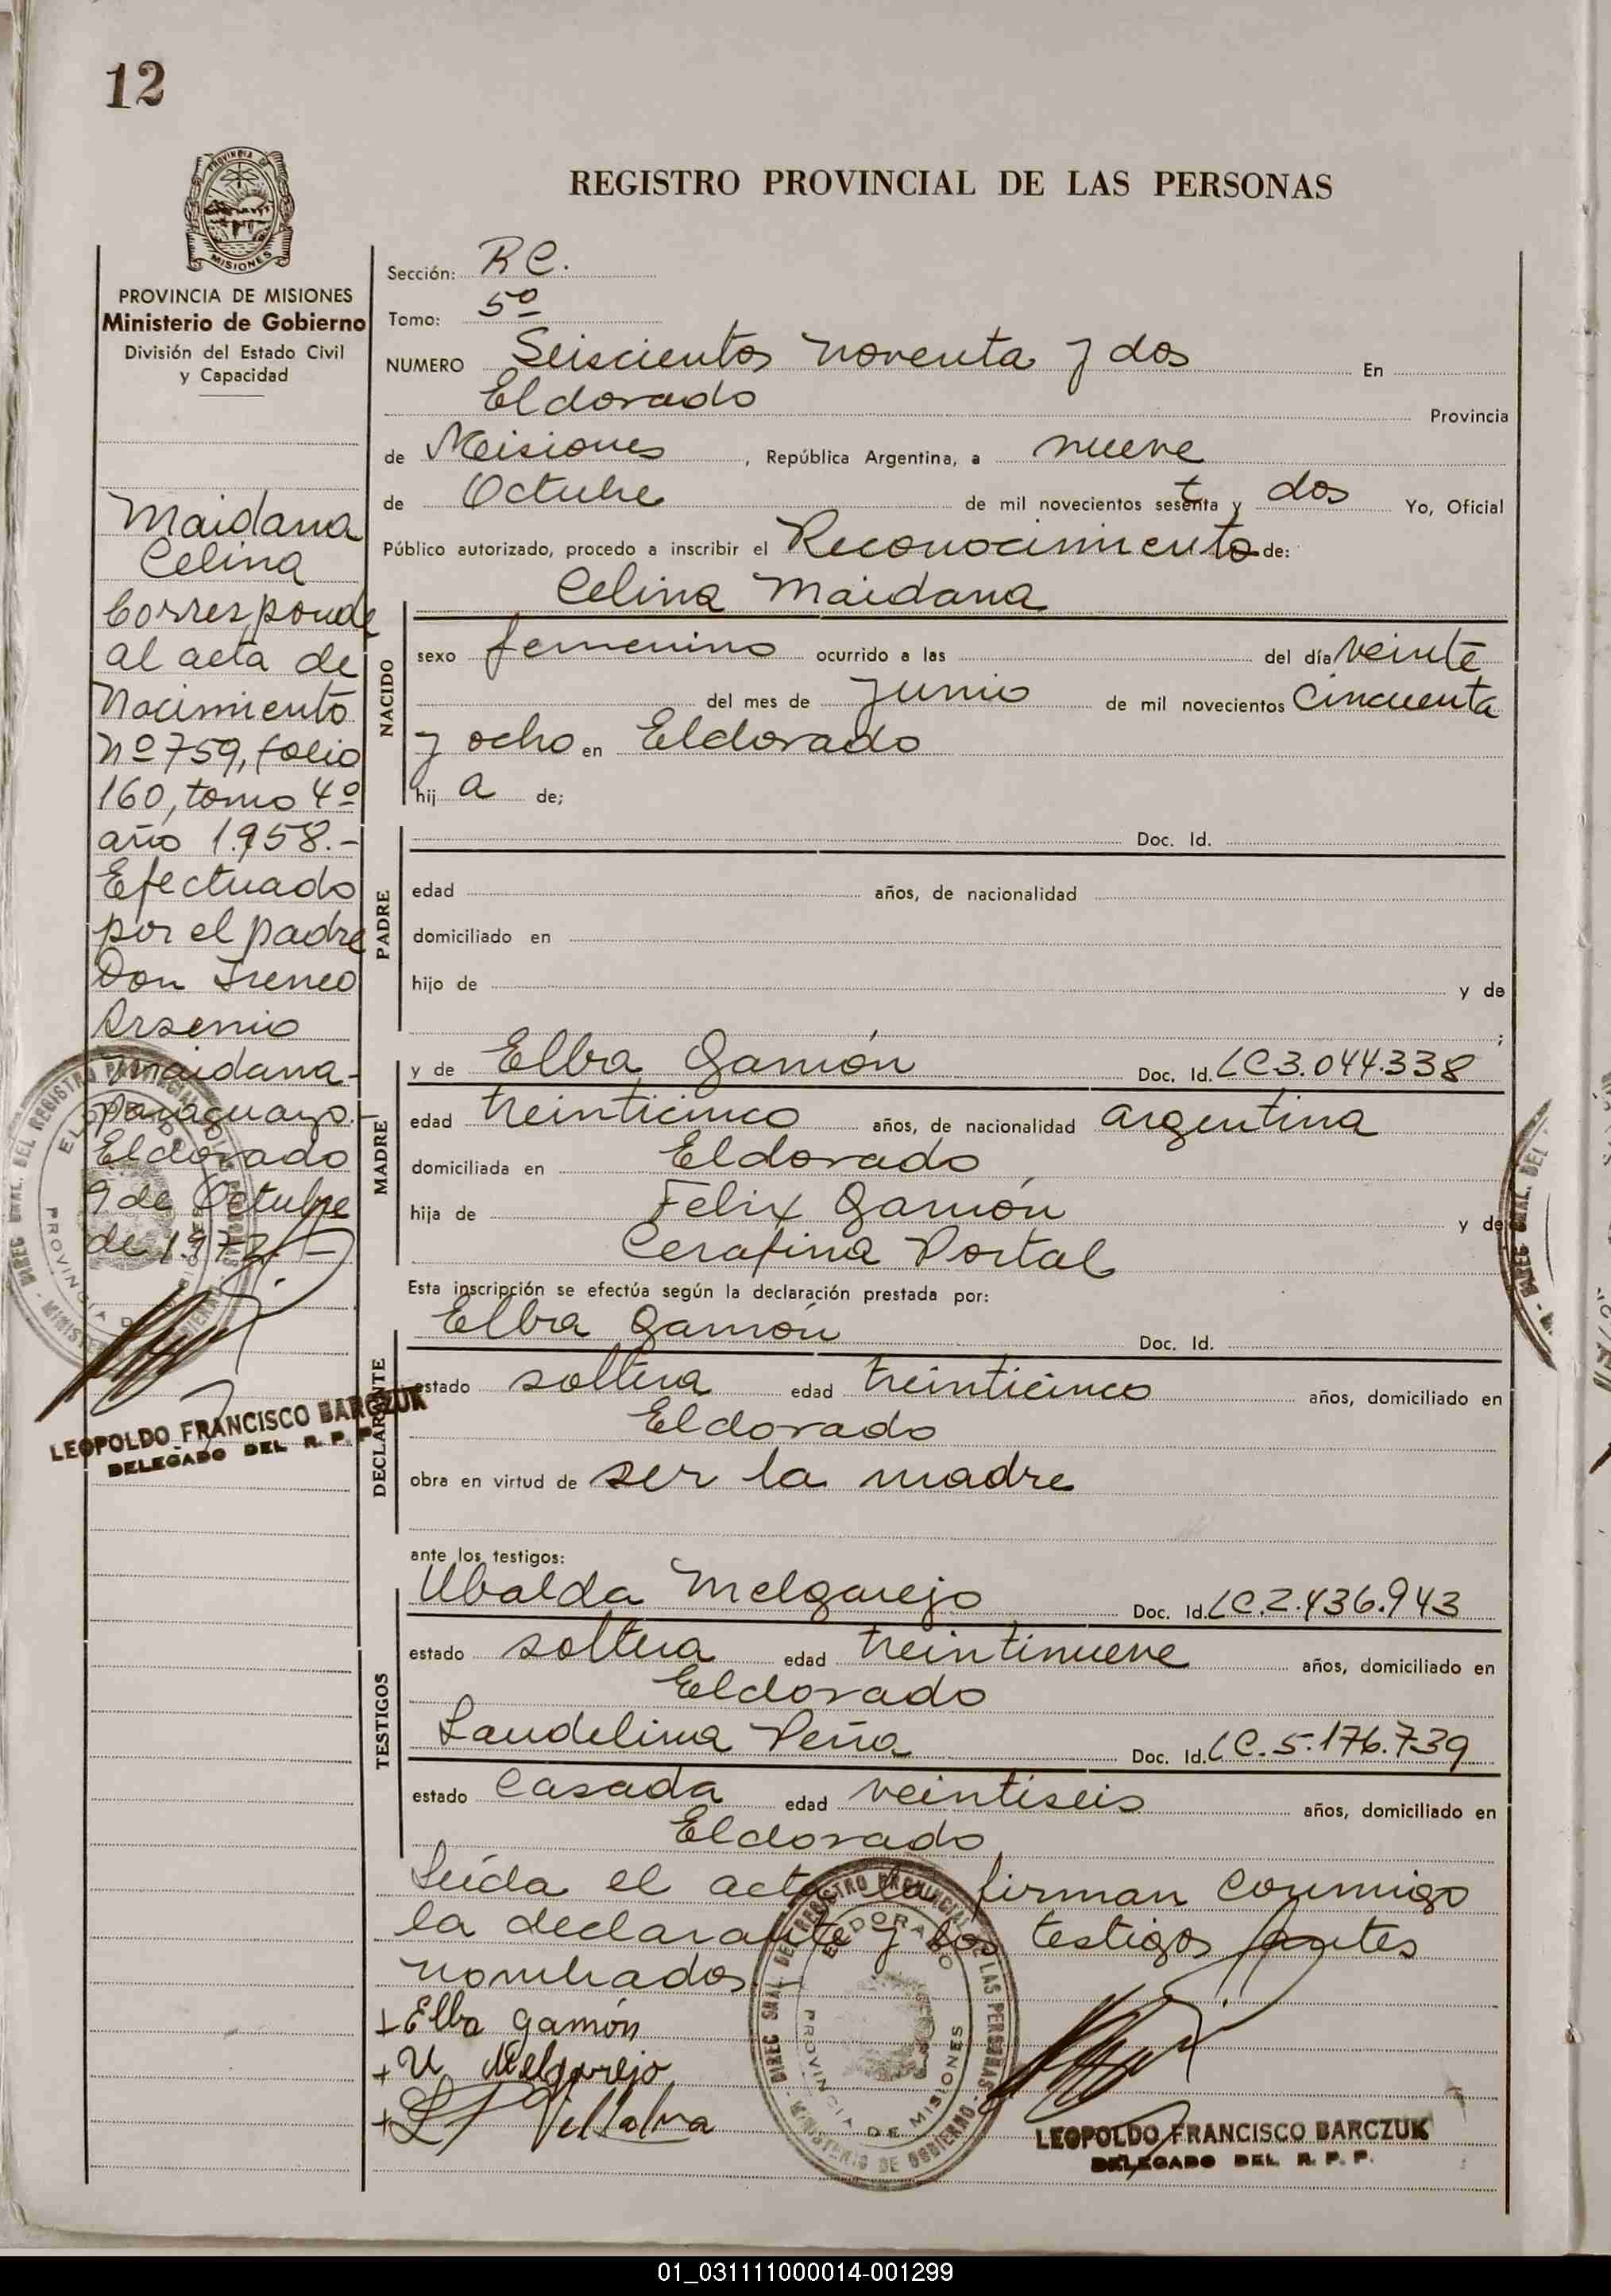 12
REGISTRO PROVINCIAL DE LAS PERSONAS
PROVINCIA DE MISIONES
Ministerio de Gobierno
División del Estado Civil
y Capacidad
Maidana
Celina
Corresponde
al acta de
Nacimiento
Nº 759, folio
160, tomo 4º
año 1.958.-
Efectuado
por el padre
Don Ireneo
Arsenio
Maidana-
paraguayo.-
Eldorado
9 de Octubre
de 1972 -
LEOPOLDO FRANCISCO BARCZUK
DELEGADO DEL R. P. P.
Sección: R C.
Tomo: 5º
NUMERO Seiscientos noventa y dos En
Eldorado Provincia
de Misiones, República Argentina, a nueve
de Octubre de mil novecientos setenta y dos Yo, Oficial
Público autorizado, procedo a inscribir el Reconocimiento de:
Celina Maidana
NACIDO
sexo femenino ocurrido a las del día veinte
del mes de Junio de mil novecientos cincuenta
y ocho en Eldorado
hij a de;
PADRE
Doc. Id.
edad años, de nacionalidad
domiciliado en
hijo de y de
;
MADRE
y de Elba Gamón Doc. Id. LC 3.044.338
edad treinticinco años, de nacionalidad argentina
domiciliada en Eldorado
hija de Felix Gamón y de
Cerafina Portal
Esta inscripción se efectúa según la declaración prestada por:
DECLARANTE
Elba Gamón Doc. Id.
estado soltera edad treinticinco años, domiciliado en
Eldorado
obra en virtud de ser la madre
ante los testigos:
TESTIGOS
Ubalda Melgarejo Doc. Id. LC. 2.436.943
estado soltera edad treintinueve años, domiciliado en
Eldorado
Laudelina Peña Doc. Id. LC. 5.176.739
estado casada edad veintiseis años, domiciliado en
Eldorado
Leída el acta la firman conmigo
la declarante y los testigos antes
nombrados.-
+ Elba Gamón
+ U Melgarejo
+ Villalva
DIREC GRAL. DEL REGISTRO PROVINCIAL DE LAS PERSONAS - MINISTERIO DE GOBIERNO -
ELDORADO
PROVINCIA DE MISIONES
LEOPOLDO FRANCISCO BARCZUK
DELEGADO DEL R. P. P.
01_031111000014-001299